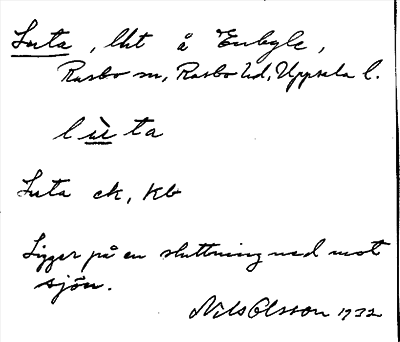 Luta, lht å Enbygle,
Rasbo sn, Rasbo hd, Uppsala l.
lùta
Luta ek, kb
Ligger på en sluttning ned mot
sjön.
Nils Olsson 1932